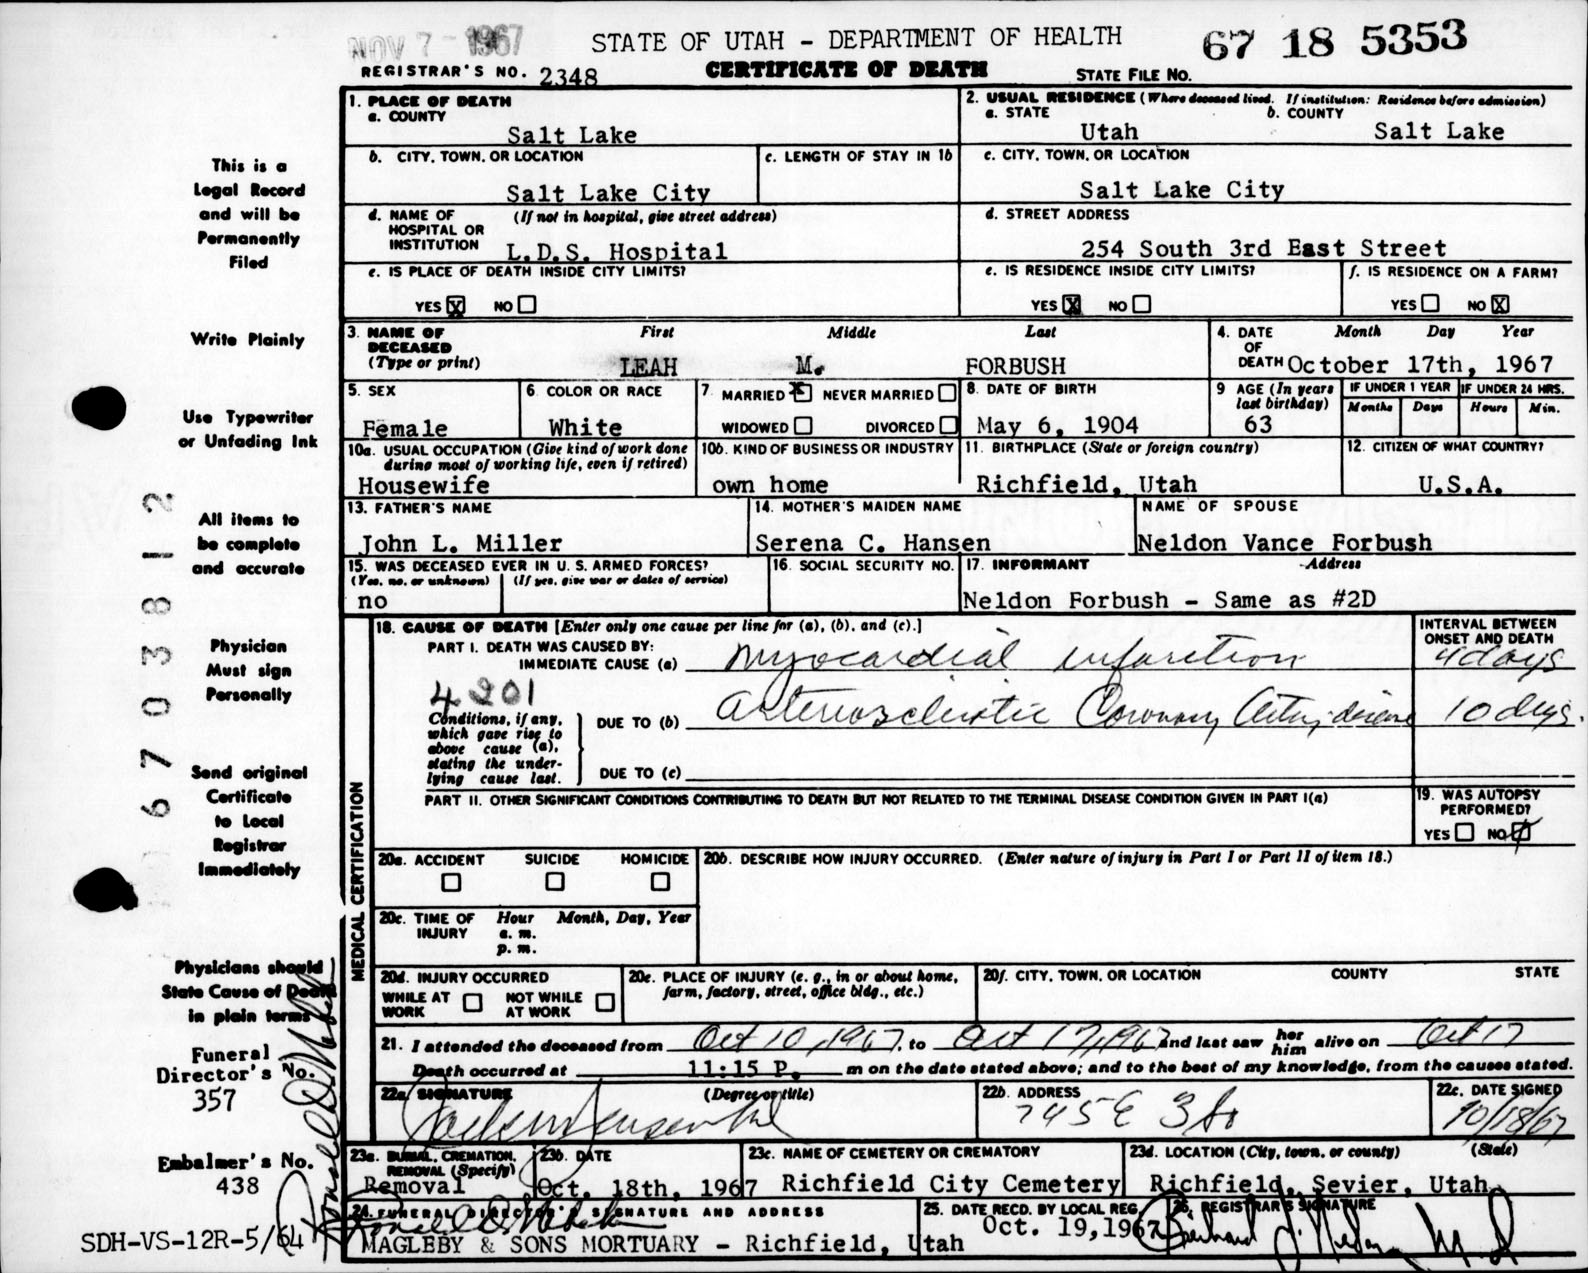 NOV 7 - 1967
STATE OF UTAH - DEPARTMENT OF HEALTH
67 18 5353
REGISTRAR'S NO. 2348
CERTIFICATE OF DEATH
STATE FILE NO.
This is a
Legal Record
and will be
Permanently
Filed
Write Plainly
Use Typewriter
or Unfading Ink
All items to
be complete
and accurate
Physician
Must sign
Personally
Send original
Certificate
to Local
Registrar
Immediately
Physicians should
State Cause of Death
in plain terms
Funeral
Director's No.
357
Embalmer's No.
438
SDH-VS-12R-5/64
6703812
1. PLACE OF DEATH
a. COUNTY
Salt Lake
2. USUAL RESIDENCE (Where deceased lived. If institution: Residence before admission)
a. STATE b. COUNTY
Utah Salt Lake
b. CITY, TOWN, OR LOCATION
Salt Lake City
c. LENGTH OF STAY IN 1b
c. CITY, TOWN, OR LOCATION
Salt Lake City
d. NAME OF HOSPITAL OR INSTITUTION (If not in hospital, give street address)
L.D.S. Hospital
d. STREET ADDRESS
254 South 3rd East Street
e. IS PLACE OF DEATH INSIDE CITY LIMITS?
YES X NO
e. IS RESIDENCE INSIDE CITY LIMITS?
YES X NO
f. IS RESIDENCE ON A FARM?
YES NO X
3. NAME OF DECEASED (Type or print)
First Middle Last
LEAH M. FORBUSH
4. DATE OF DEATH
Month Day Year
October 17th, 1967
5. SEX
Female
6. COLOR OR RACE
White
7 MARRIED X NEVER MARRIED
WIDOWED DIVORCED
8. DATE OF BIRTH
May 6, 1904
9 AGE (In years last birthday)
63
IF UNDER 1 YEAR
Months Days
IF UNDER 24 HRS.
Hours Min.
10a. USUAL OCCUPATION (Give kind of work done during most of working life, even if retired)
Housewife
10b. KIND OF BUSINESS OR INDUSTRY
own home
11. BIRTHPLACE (State or foreign country)
Richfield, Utah
12. CITIZEN OF WHAT COUNTRY?
U.S.A.
13. FATHER'S NAME
John L. Miller
14. MOTHER'S MAIDEN NAME
Serena C. Hansen
NAME OF SPOUSE
Neldon Vance Forbush
15. WAS DECEASED EVER IN U.S. ARMED FORCES?
(Yes, no, or unknown) (If yes, give war or dates of service)
no
16. SOCIAL SECURITY NO.
17. INFORMANT Address
Neldon Forbush - Same as #2D
MEDICAL CERTIFICATION
18. CAUSE OF DEATH [Enter only one cause per line for (a), (b), and (c).]
INTERVAL BETWEEN ONSET AND DEATH
PART I. DEATH WAS CAUSED BY:
IMMEDIATE CAUSE (a) Myocardial infarction 4 days
4201
Conditions, if any, which gave rise to above cause (a), stating the underlying cause last.
DUE TO (b) Arteriosclerotic Coronary Artery disease 10 days.
DUE TO (c)
PART II. OTHER SIGNIFICANT CONDITIONS CONTRIBUTING TO DEATH BUT NOT RELATED TO THE TERMINAL DISEASE CONDITION GIVEN IN PART I(a)
19. WAS AUTOPSY PERFORMED?
YES NO
20a. ACCIDENT SUICIDE HOMICIDE
20b. DESCRIBE HOW INJURY OCCURRED. (Enter nature of injury in Part I or Part II of item 18.)
20c. TIME OF INJURY Hour Month, Day, Year
a. m.
p. m.
20d. INJURY OCCURRED
WHILE AT WORK NOT WHILE AT WORK
20e. PLACE OF INJURY (e. g., in or about home, farm, factory, street, office bldg., etc.)
20f. CITY, TOWN, OR LOCATION COUNTY STATE
21. I attended the deceased from Oct 10, 1967, to Oct 17, 1967 and last saw her him alive on Oct 17
Death occurred at 11:15 P. m on the date stated above; and to the best of my knowledge, from the causes stated.
22a SIGNATURE (Degree or title)
22b. ADDRESS
745 E 3 So
22c. DATE SIGNED
10/18/67
23a. BURIAL, CREMATION, REMOVAL (Specify)
Removal
23b. DATE
Oct. 18th, 1967
23c. NAME OF CEMETERY OR CREMATORY
Richfield City Cemetery
23d. LOCATION (City, town, or county) (State)
Richfield, Sevier, Utah
24. FUNERAL DIRECTOR'S SIGNATURE AND ADDRESS
MAGLEBY & SONS MORTUARY - Richfield, Utah
25. DATE RECD. BY LOCAL REG.
Oct. 19, 1967
26. REGISTRAR'S SIGNATURE